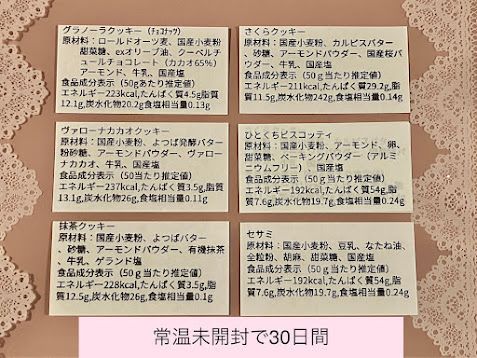 グラノーラクッキー（ﾁｮｺﾅｯﾂ）
原材料：ロールドオーツ麦、国産小麦粉
甜菜糖、exオリーブ油、クーベルチ
ュールチョコレート（カカオ65％）
アーモンド、牛乳、国産塩
食品成分表示（50gあたり推定値）
エネルギー223kcal,たんぱく質4.5g脂質
12.1g,炭水化物20.2g食塩相当量0.13g
さくらクッキー
原材料：国産小麦粉、カルピスバター
、砂糖、アーモンドパウダー、国産桜パ
ウダー、牛乳、国産塩
食品成分表示（50ｇ当たり推定値）
エネルギー211kcal,たんぱく質29.2g,脂
質11.5g,炭水化物242g,食塩相当量0.14g
ヴァローナカカオクッキー
原材料：国産小麦粉、よつば発酵バター
粉砂糖、アーモンドパウダー、ヴァロー
ナカカオ、牛乳、国産塩
食品成分表示（50ｇ当たり推定値）
エネルギー237kcal,たんぱく質3.5g,脂質
13.1g,炭水化物26g,食塩相当量0.11g
ひとくちビスコッティ
原材料：国産小麦粉、アーモンド、卵、
甜菜糖、ベーキングパウダー（アルミ
ニウムフリー）、国産塩
食品成分表示（50ｇ当たり推定値）
エネルギー192kcal,たんぱく質54g,脂
質7.6g,炭水化物19.7g,食塩相当量0.24g
抹茶クッキー
原材料：国産小麦粉、よつばバター
、砂糖、アーモンドパウダー、有機抹茶
、牛乳、ゲランド塩
食品成分表示（50ｇ当たり推定値）
エネルギー228kcal,たんぱく質3.5g,脂
質12.5g,炭水化物26g,食塩相当量0.1g
セサミ
原材料：国産小麦粉、豆乳、なたね油、
全粒粉、胡麻、甜菜糖、国産塩
食品成分表示（50ｇ当たり推定値）
エネルギー192kcal,たんぱく質54g,脂
質7.6g,炭水化物19.7g,食塩相当量0.24g
常温未開封で30日間